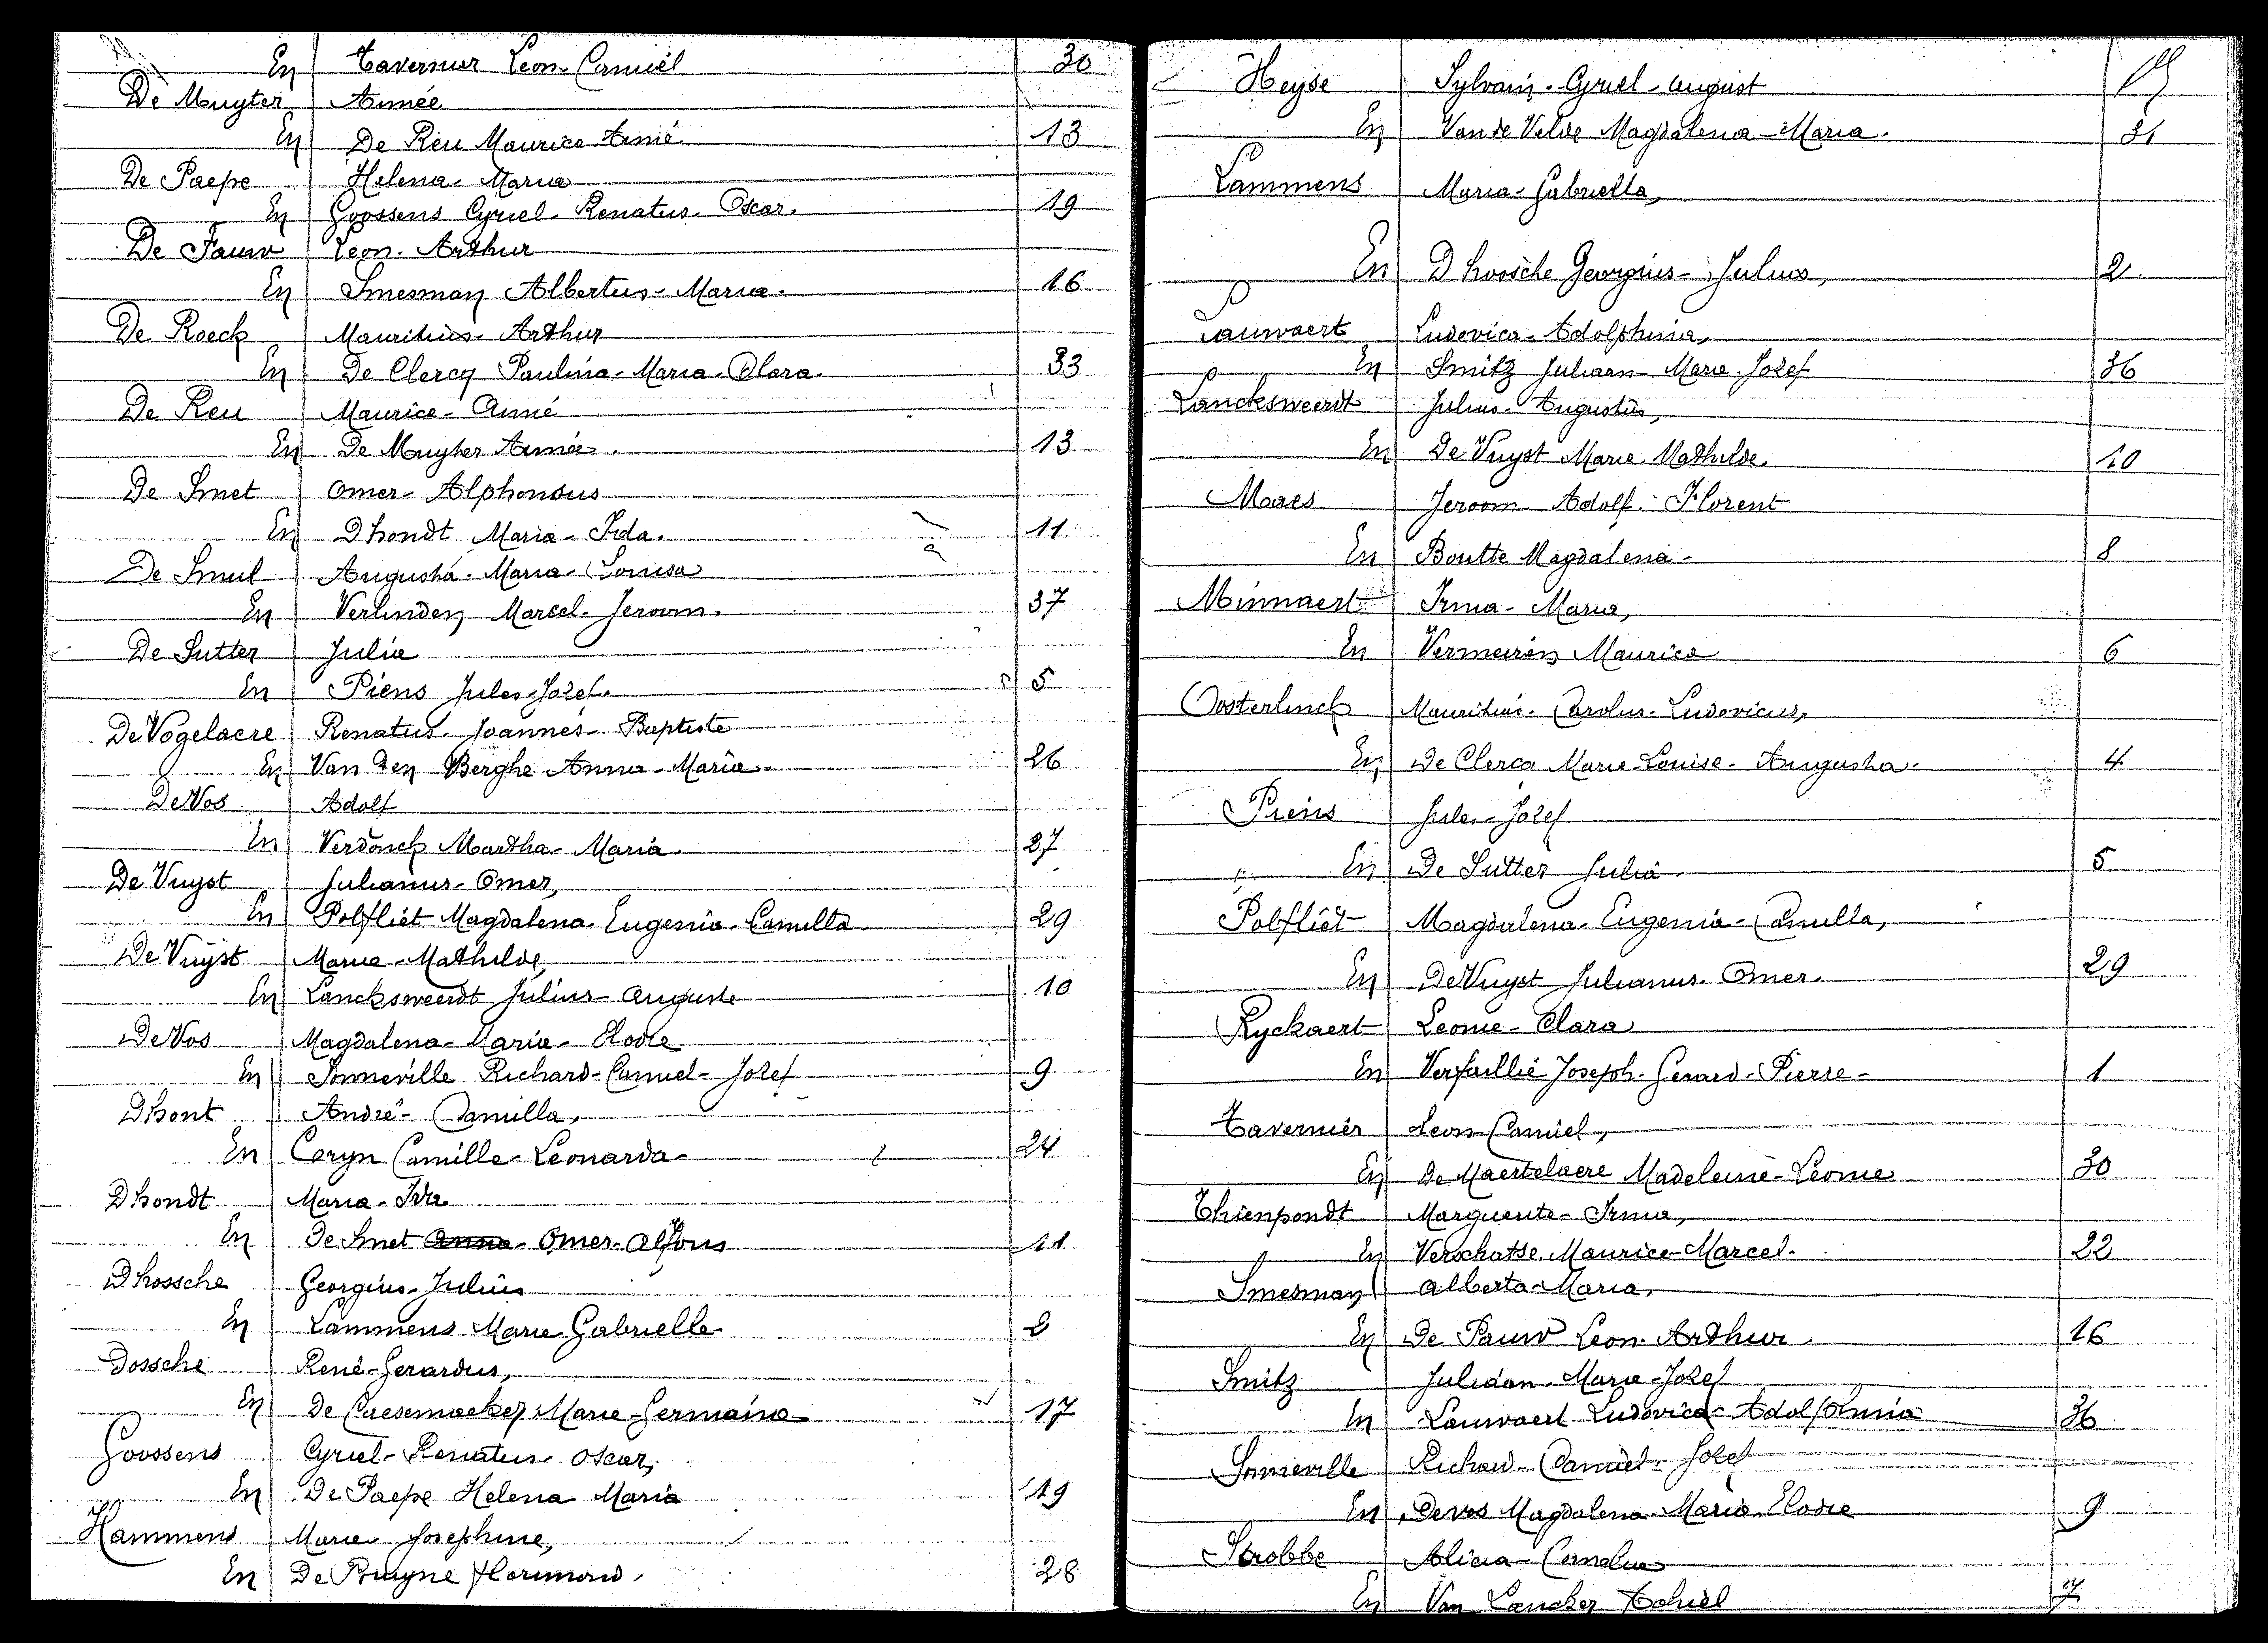 En Tavernier Leon Camiel 30
De Muyter Aimée
En De Reu Maurice Aimé 13
De Paepe Helena - Maria
En Goossens Cyriel - Renatus - Oscar. 19
De Pauw Leon - Arthur
En Smesman Albertus - Maria. 16
De Roeck Mauritius - Arthur
En De Clercq Paulina - Maria - Clara. 33
De Reu Maurice - Aimé
En De Muyter Aimée. 13
De Smet Omer - Alphonsus
En Dhondt Maria - Ida. 11
De Smul Augusta - Maria - Louisa
En Verlinden Marcel - Jeroom. 37
De Sutter Julia
En Piens Jules - Jozef. 5
De Vogelaere Renatus - Joannes - Baptiste
En Van Den Berghe Anna - Maria. 26
De Vos Adolf
En Verdonck Martha - Maria. 27
De Vuyst Julianus - Omer,
En Polfliet Magdalena - Eugenia - Camilla. 29
De Vuyst Marie - Mathilde,
En Lancksweerdt Julius - Auguste 10
De Vos Magdalena - Maria - Elodie
En Sonneville Richard - Camiel - Jozef 9
Dhont André - Camilla,
En Coryn Camille - Leonarda - 24
Dhondt Maria - Ida
En De Smet Anna - Omer - Alfons 11
Dhossche Georgius - Julius
En Lammens Marie Gabrielle 2
Dossche René - Gerardus,
En De Caesemaeker Marie - Germaine 17
Goossens Cyriel - Renatus - Oscar,
En De Paepe Helena Maria 19
Hammens Marie Josephine,
En De Bruyne Florimond. 28
Heyse Sylvain - Cyriel - August
En Van de Velde Magdalena - Maria. 31
Lammens Maria - Gabriella,
En Dhossche Georgius - Julius, 2
Lauwaert Ludovica - Adolphina,
En Smitz Juliaan - Marie - Jozef 36
Lancksweerdt Julius - Augustus,
En De Vuyst Marie Mathilde. 10
Maes Jeroom - Adolf - Florent
En Boutte Magdalena - 8
Minnaert Irma - Maria,
En Vermeiren Maurice 6
Oosterlinck Mauritius - Carolus - Ludovicus,
En De Clercq Marie - Louise - Augusta. 4
Piens Jules - Jozef
En De Sutter Julia 5
Polfliet Magdalena - Eugenia - Camilla,
En De Vuyst Julianus - Omer. 29
Ryckaert Leonie - Clara
En Verfaillie Joseph - Gerard - Pierre - 1
Tavernier Leon Camiel,
En De Maertelaere Madeleine - Leonie 30
Thienpondt Marguerite - Irma,
En Verschatse Maurice - Marcel. 22
Smesman Alberta - Maria,
En De Pauw Leon - Arthur. 16
Smitz Juliaan - Marie - Jozef
En Lauwaert Ludovica - Adolphina 36
Sonneville Richard - Camiel - Jozef
En Devos Magdalena - Maria - Elodie 9
Strobbe Alicia - Cornelia
En Van Lancker Achiel 7